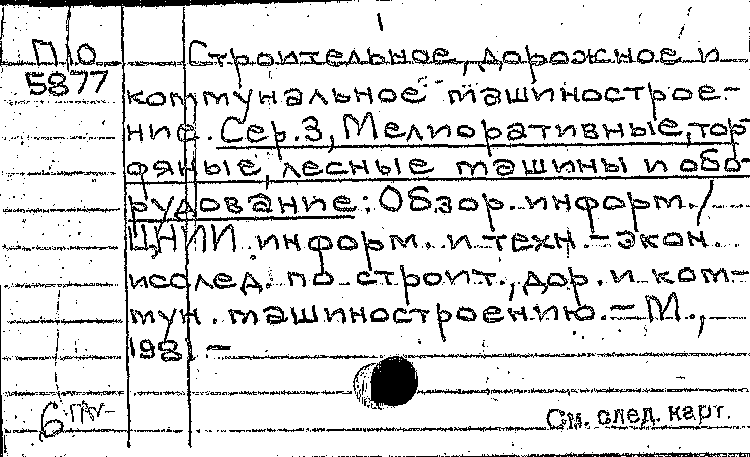 П10
5877
Строительное, дорожное и
коммунальное машинострое-
ние. Сер.3, Мелиоративные, тор-
фяные, лесные машины и обо-
рудование: Обзор. информ. /
ЦНИИ информ. и техн.-экон.
исслед. по строит., дор. и ком-
мун. машиностроению. - М.,
1981 -
См. след. карт.